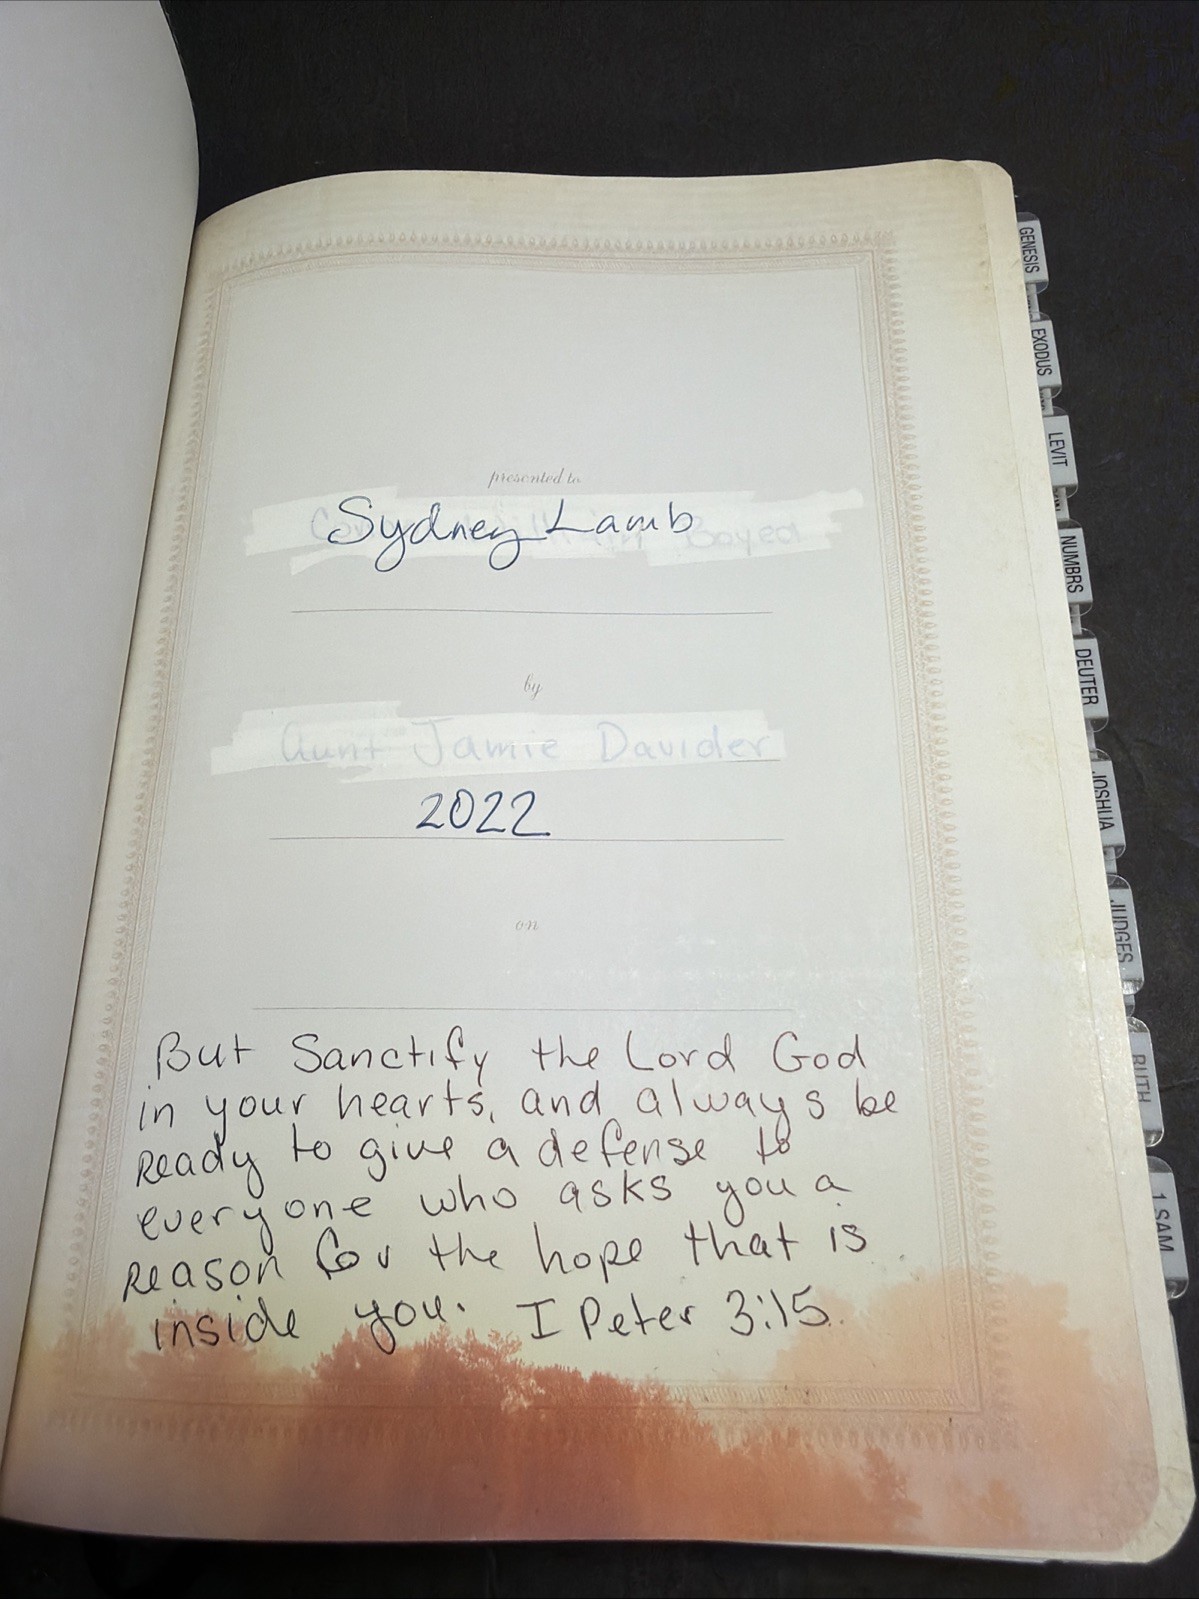 presented to
Sydney Lamb
by
Aunt Jamie Davider
2022
on
But Sanctify the Lord God
in your hearts, and always be
ready to give a defense to
everyone who asks you a
reason for the hope that is
inside you. I Peter 3:15
GENESIS
EXODUS
LEVIT
NUMBRS
DEUTER
JOSHUA
JUDGES
RUTH
1 SAM